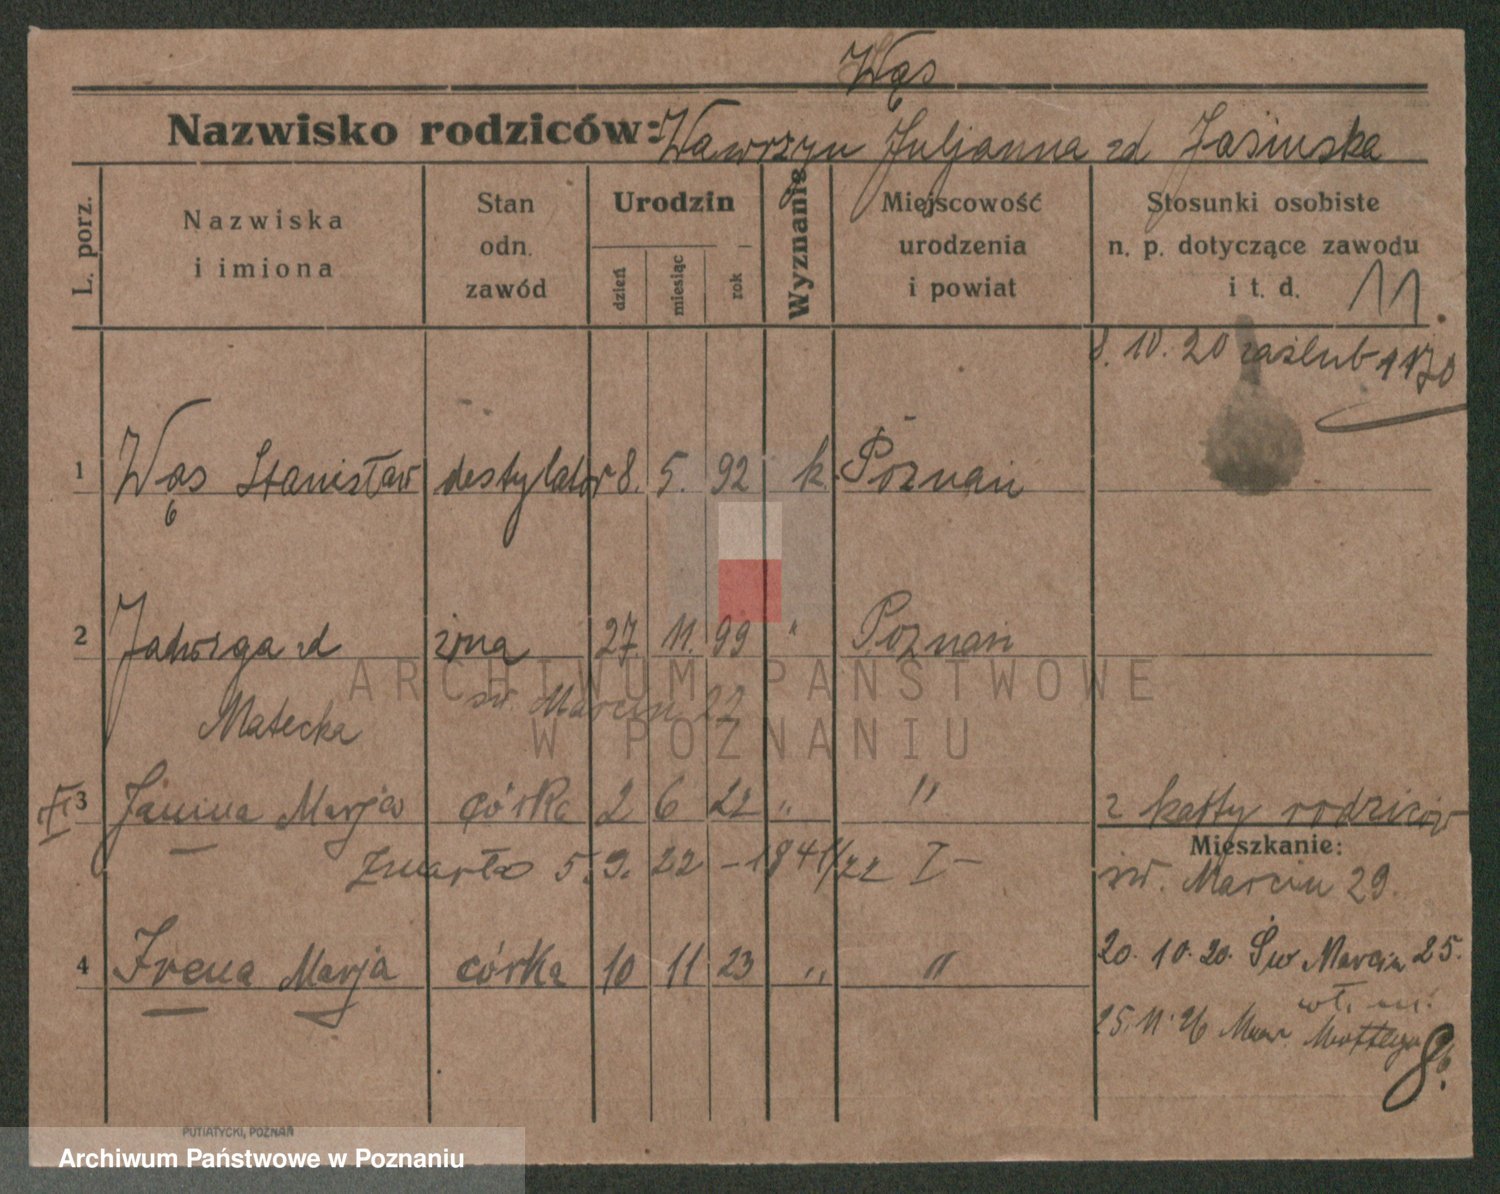 Wąs
Nazwisko rodziców: Wawrzyn Juljanna zd Jasinska
L. porz.
Nazwiska
i imiona
Stan
odn.
zawód
Urodzin
dzień
miesiąc
rok
Wyznanie
Miejscowość
urodzenia
i powiat
Stosunki osobiste
n. p. dotyczące zawodu
i t. d. 11.
8. 10. 20 zaślub 1170
1 Wąs Stanisław destylator 8. 5. 92 k. Poznań
2 Jadwiga zd żona 27 11. 99 " Poznań
Matecka św Marcin 22
3 Janina Marja córka 2 6 22 " " z karty rodziców
zmarła 5. 9. 22 – 1841/22 I –
Mieszkanie:
św. Marcin 29.
4 Irena Marja córka 10 11 23 " "
20. 10. 20. Św Marcin 25.
25. 11. 26 8
PUTIATYCKI, POZNAŃ
ARCHIWUM PAŃSTWOWE
W POZNANIU
Archiwum Państwowe w Poznaniu